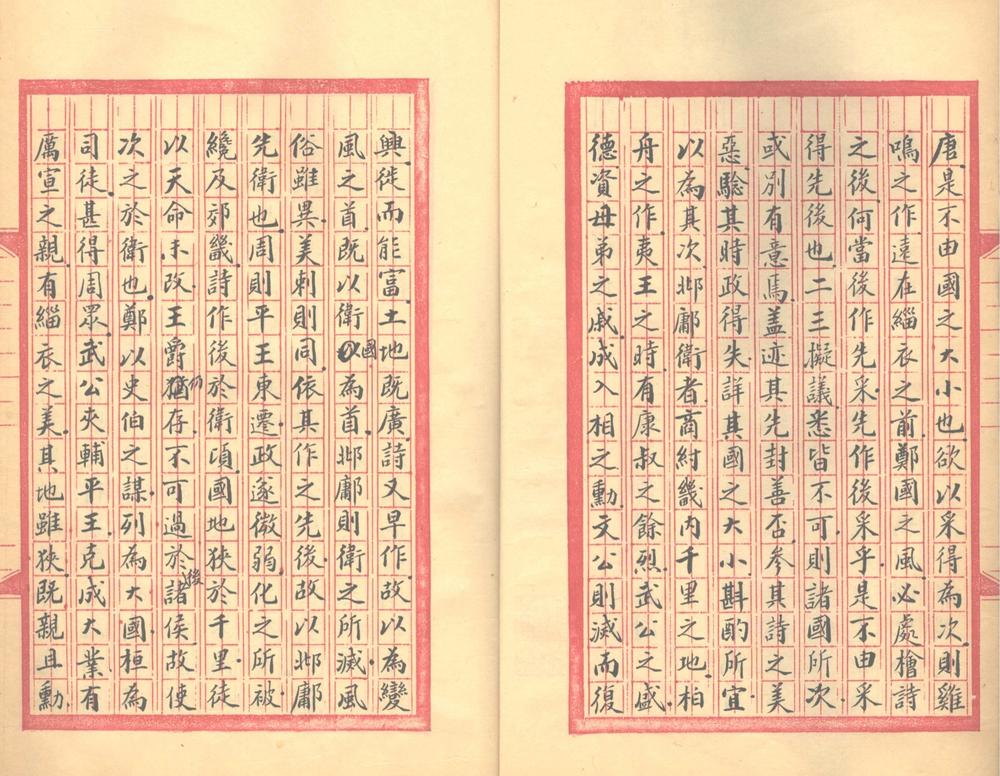 唐是不由國之大小也欲以采得為次則雞
鳴之作遠在緇衣之前鄭國之風必處檜詩
之後何當後作先采先作後采乎是不由采
得先後也二三擬議悉皆不可則諸國所次
或別有意焉蓋迹其先封善否參其詩之美
惡驗其時政得失詳其國之大小斟酌所宜
以為其次邶鄘衛者商紂畿內千里之地柏
舟之作夷王之時有康叔之餘烈武公之盛
德資母弟之戚成入相之勳文公則滅而復
興徙而能富土地既廣詩又早作故以為變
風之首既以衛國為首邶鄘則衛之所滅風
俗雖異美刺則同依其作之先後故以邶鄘
先衛也周則平王東遷政遂微弱化之所被
纔及郊畿詩作後於衛頃國地狹於千里徒
以天命未改王爵仍存不可過於後諸侯故使
次之於衛也鄭以史伯之謀列為大國桓為
司徒甚得周眾武公夾輔平王克成大業有
厲宣之親有緇衣之美其地雖狹既親且勳